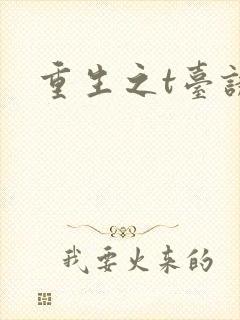 重生之t臺
我要火来的